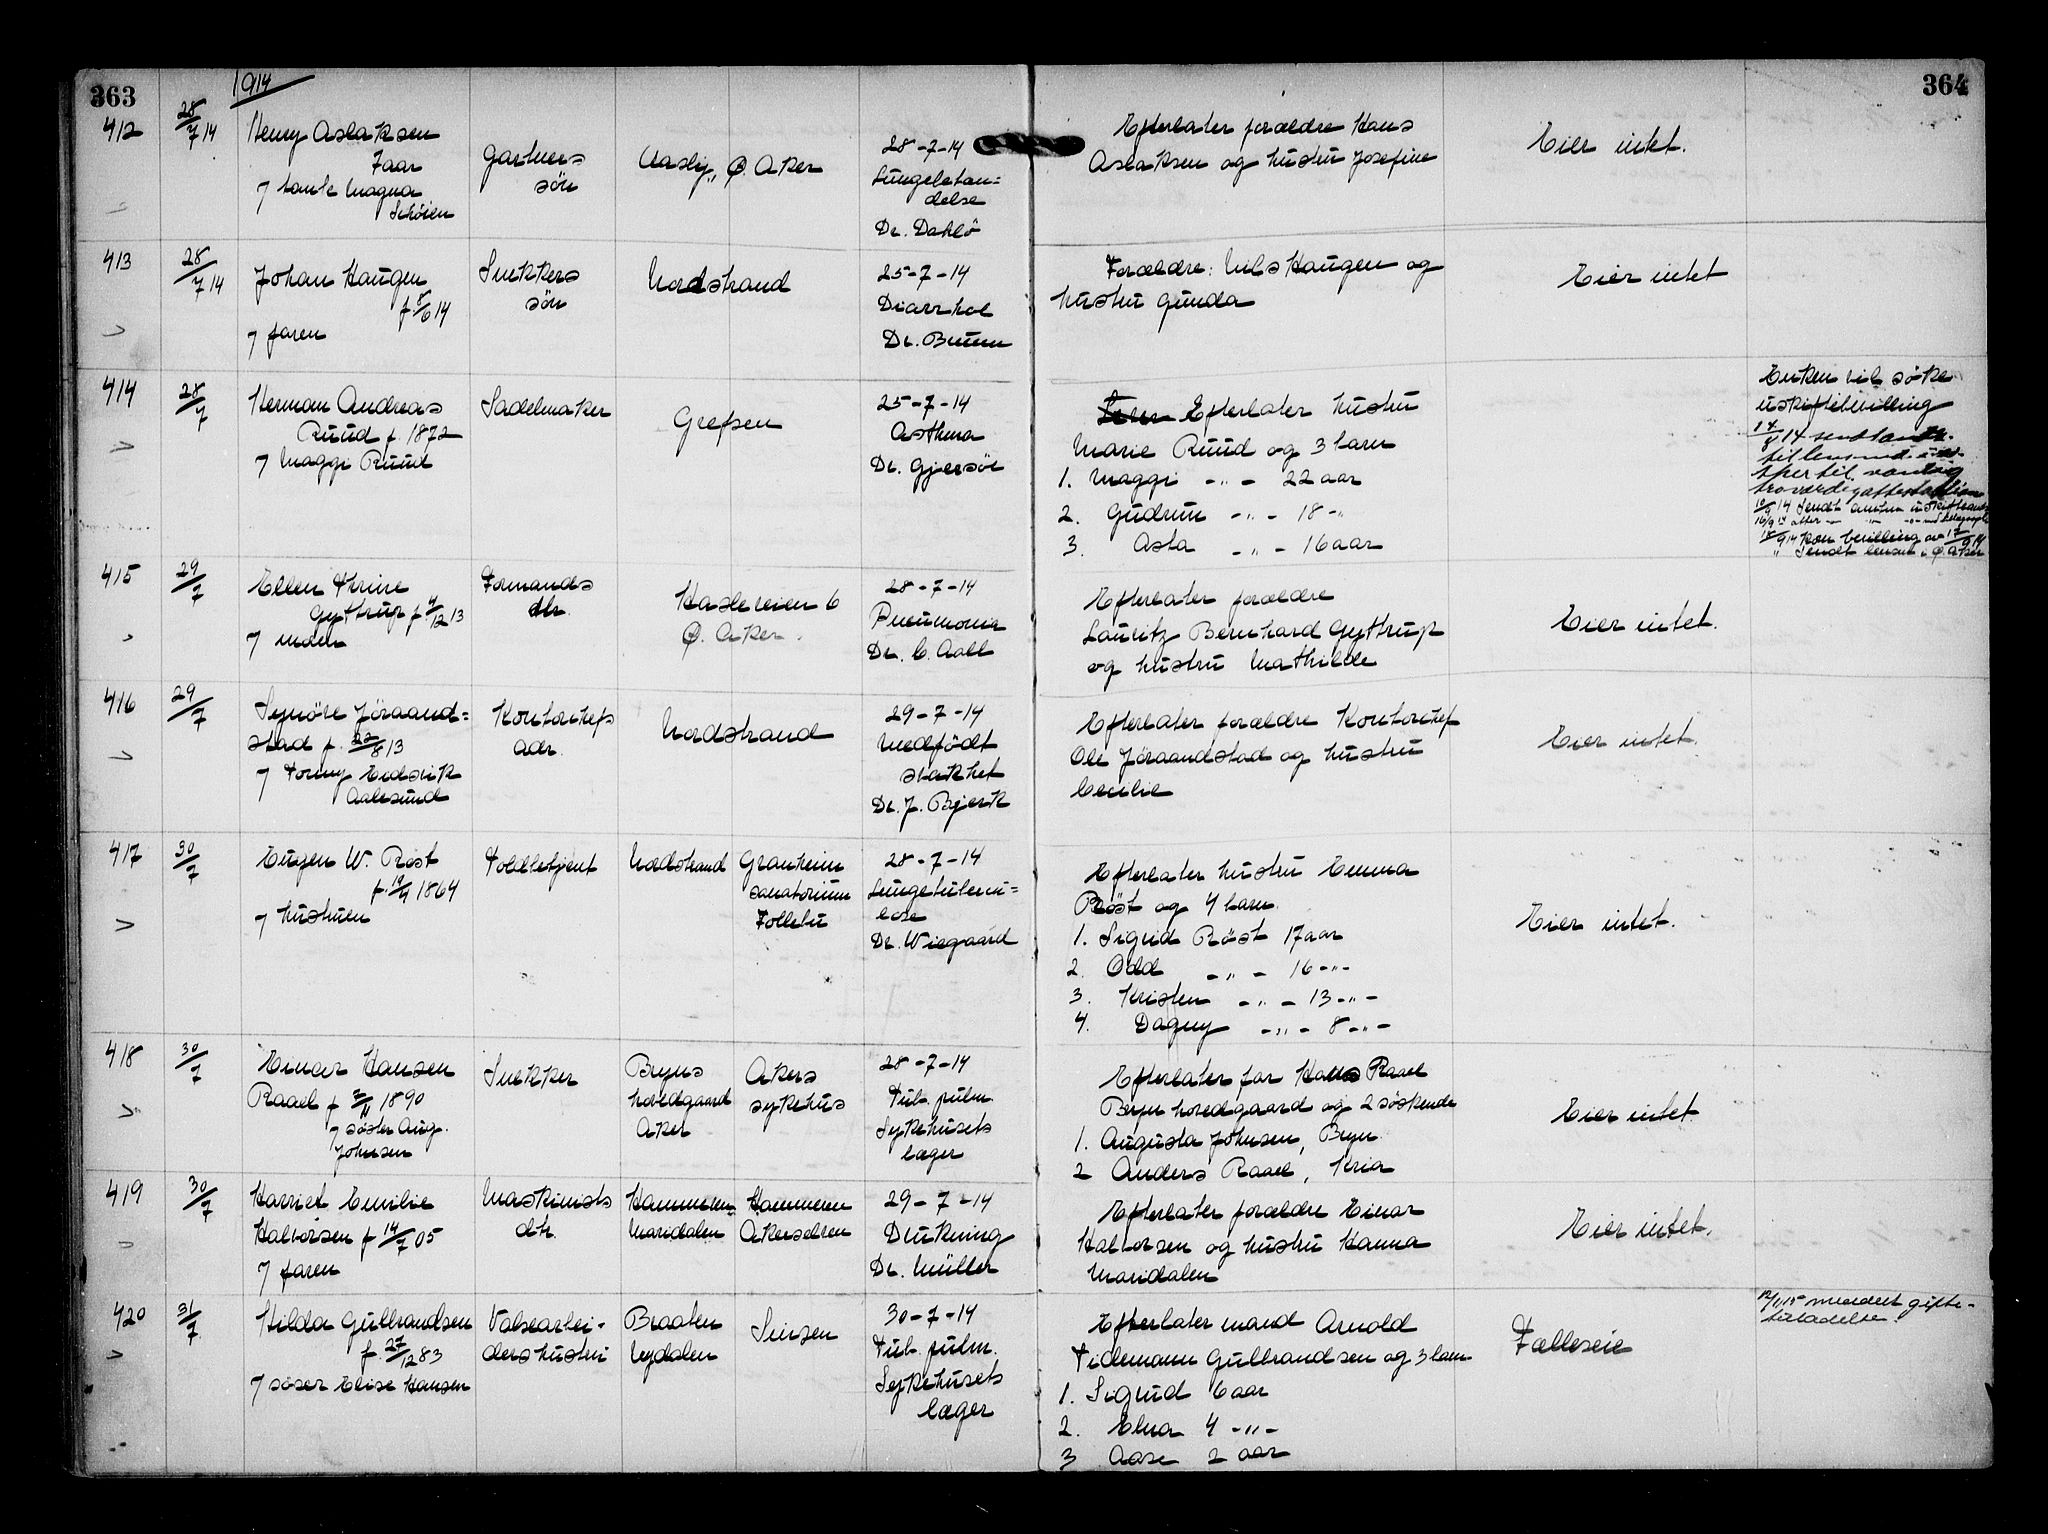 363
364
1914
412
28/7 14
Henry Aslaksen
7 aar
7 tante Magna
Schöien
Gartners
sön
Aasly, Ø. Aker
28-7-14
Lungebetæn=
delse
Dr. Dahlö
Efterlater forældre Hans
Aslaksen og hustru Josefine
Eier intet.
413
28/7 14
Johan Haugen
f. 8/6 14
7 faren
Snekkers
sön
Nordstrand
25-7-14
Diarrhoe
Dr. Bruun
Forældre: Nils Haugen og
hustru Gunda
Eier intet
414
28/7
Herman Andreas
Ruud f. 1872
7 Maggi Ruud
Sadelmaker
Grefsen
25-7-14
Asthma
Dr. Gjersöe
Efterlater hustru
Marie Ruud og 3 barn
1. Maggi -"- 22 aar
2. Gudrun -"- 18 -"
3. Asta -"- 16 aar
Enken vil söke
uskiftebevilling
415
29/7
Ellen Thrine
Gyttrup f 4/12 13
7 moder
Formands
dtr.
Hasleveien 6
Ø. Aker.
28-7-14
Pneumonia
Dr. C. Aall
Efterlater forældre
Lauritz Bernhard Gyttrup
og hustru Mathilde
Eier intet.
416
29/7
Synöve Jöraand=
stad f. 22/8 13
7 Tormy Eidsvik
Aalesund
Kontorchefs
adr.
Nordstrand
29-7-14
Medfödt
svakhet
Dr. J. Bjerk
Efterlater forældre Kontorchef
Ole Jöraandstad og hustru
Cecilie
Eier intet.
417
30/7
Eugen W. Röst
f. 19/4 1864
7 hustruen
Toldbetjent
Nordstrand
Granheim
sanatorium
Follebu
28-7-14
Lungetuberku=
lose
Dr. Wiegaard
Efterlater hustru Emma
Röst og 4 barn.
1. Sigrid Röst 17 aar
2. Odd -"- 16 -"-
3. Kristen -"- 13 -"-
4. Dagny -"- 8 -"-
Eier intet.
418
30/7
Einar Hansen
Raael f 2/11 1890
7 söster Aug.
Johnsen
Snekker
Bryns
hovedgaard
Aker
Akers
sykehus
28-7-14
Tub. pulm.
Sykehusets
læger
Efterlater far Hans Raael
Bryn hovedgaard og 2 söskende
1. Augusta Johnsen, Bryn
2 Anders Raael, Kria
Eier intet.
419
30/7
Harriet Emilie
Halvorsen f 14/7 05
7 faren
Maskinists
dtr.
Hammeren
Maridalen
Hammeren
Akerselven
29-7-14
Drukning
Dr. Müller
Efterlater forældre Einar
Halvorsen og hustru Hanna
Maridalen
Eier intet.
420
31/7
Hilda Gulbrandsen
f. 27/12 83
7 söster Elise Hansen
Valsearbei-
ders hustru
Braaten
Nydalen
Sinsen
30-7-14
Tub. pulm.
Sykehusets
læger
Efterlater mand Arnold
Tidemann Gulbrandsen og 3 barn
1. Sigrud 6 aar
2. Elna 4 -"-
3 Aase 2 aar
Fælleseie